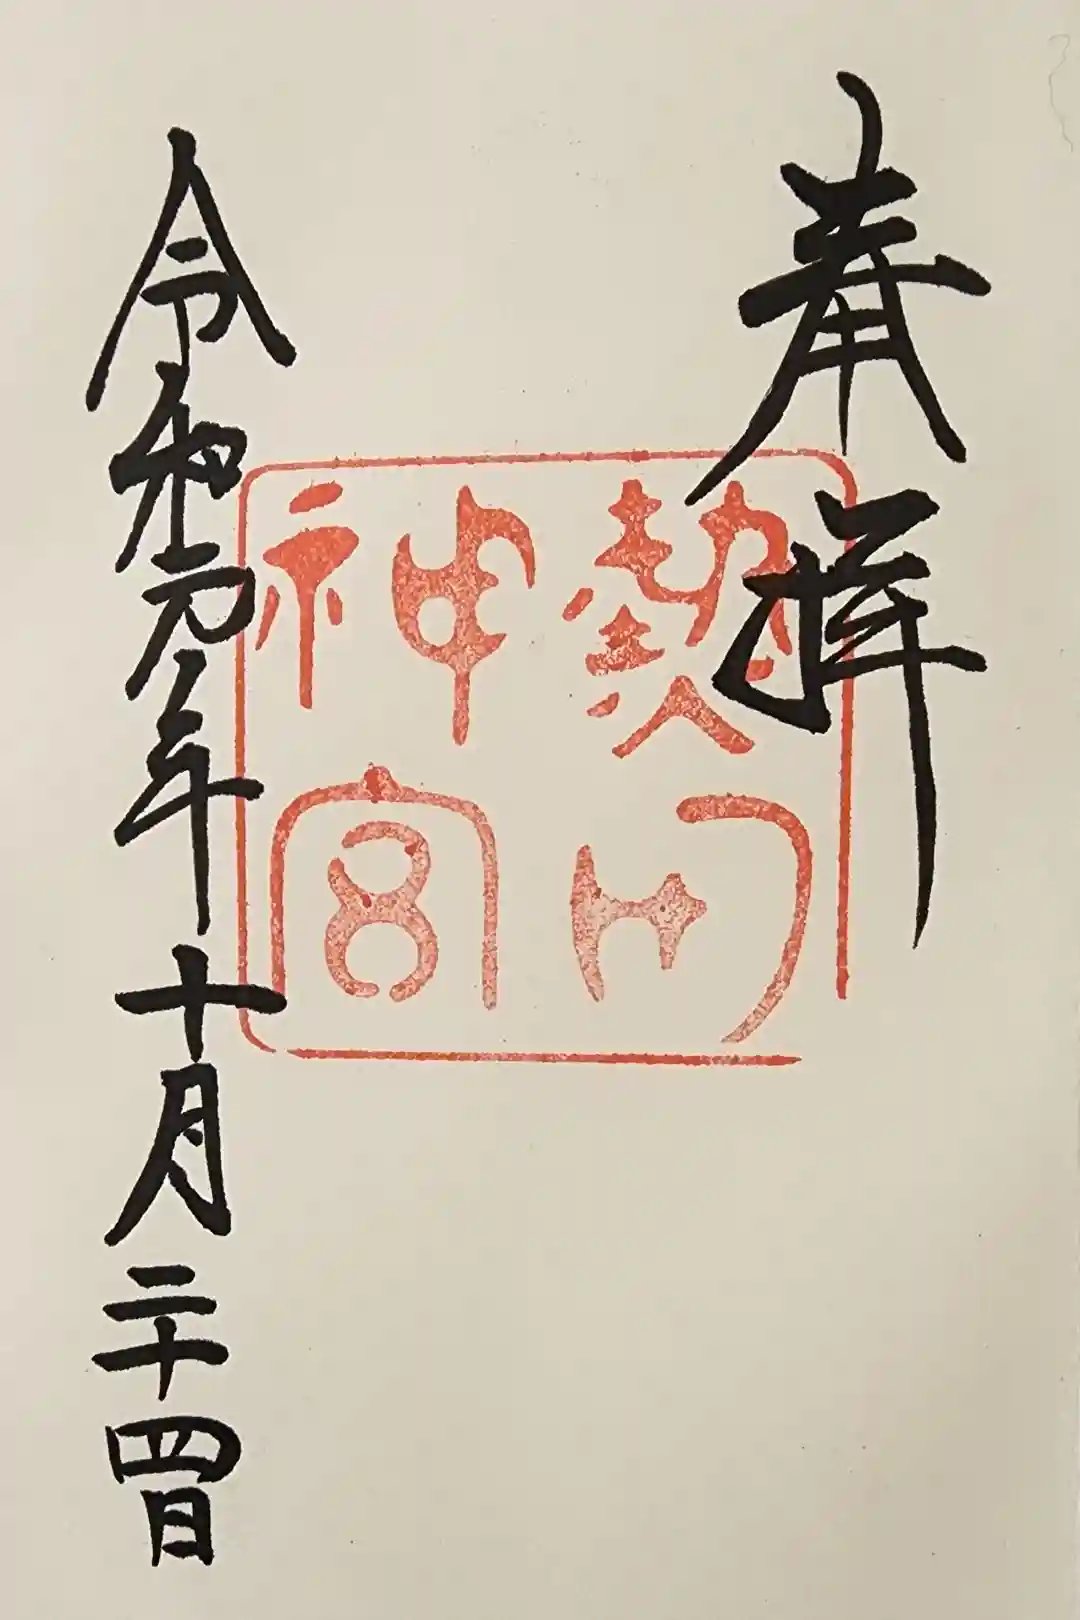 奉拝
熱田
神宮
令和元年十月二十四日